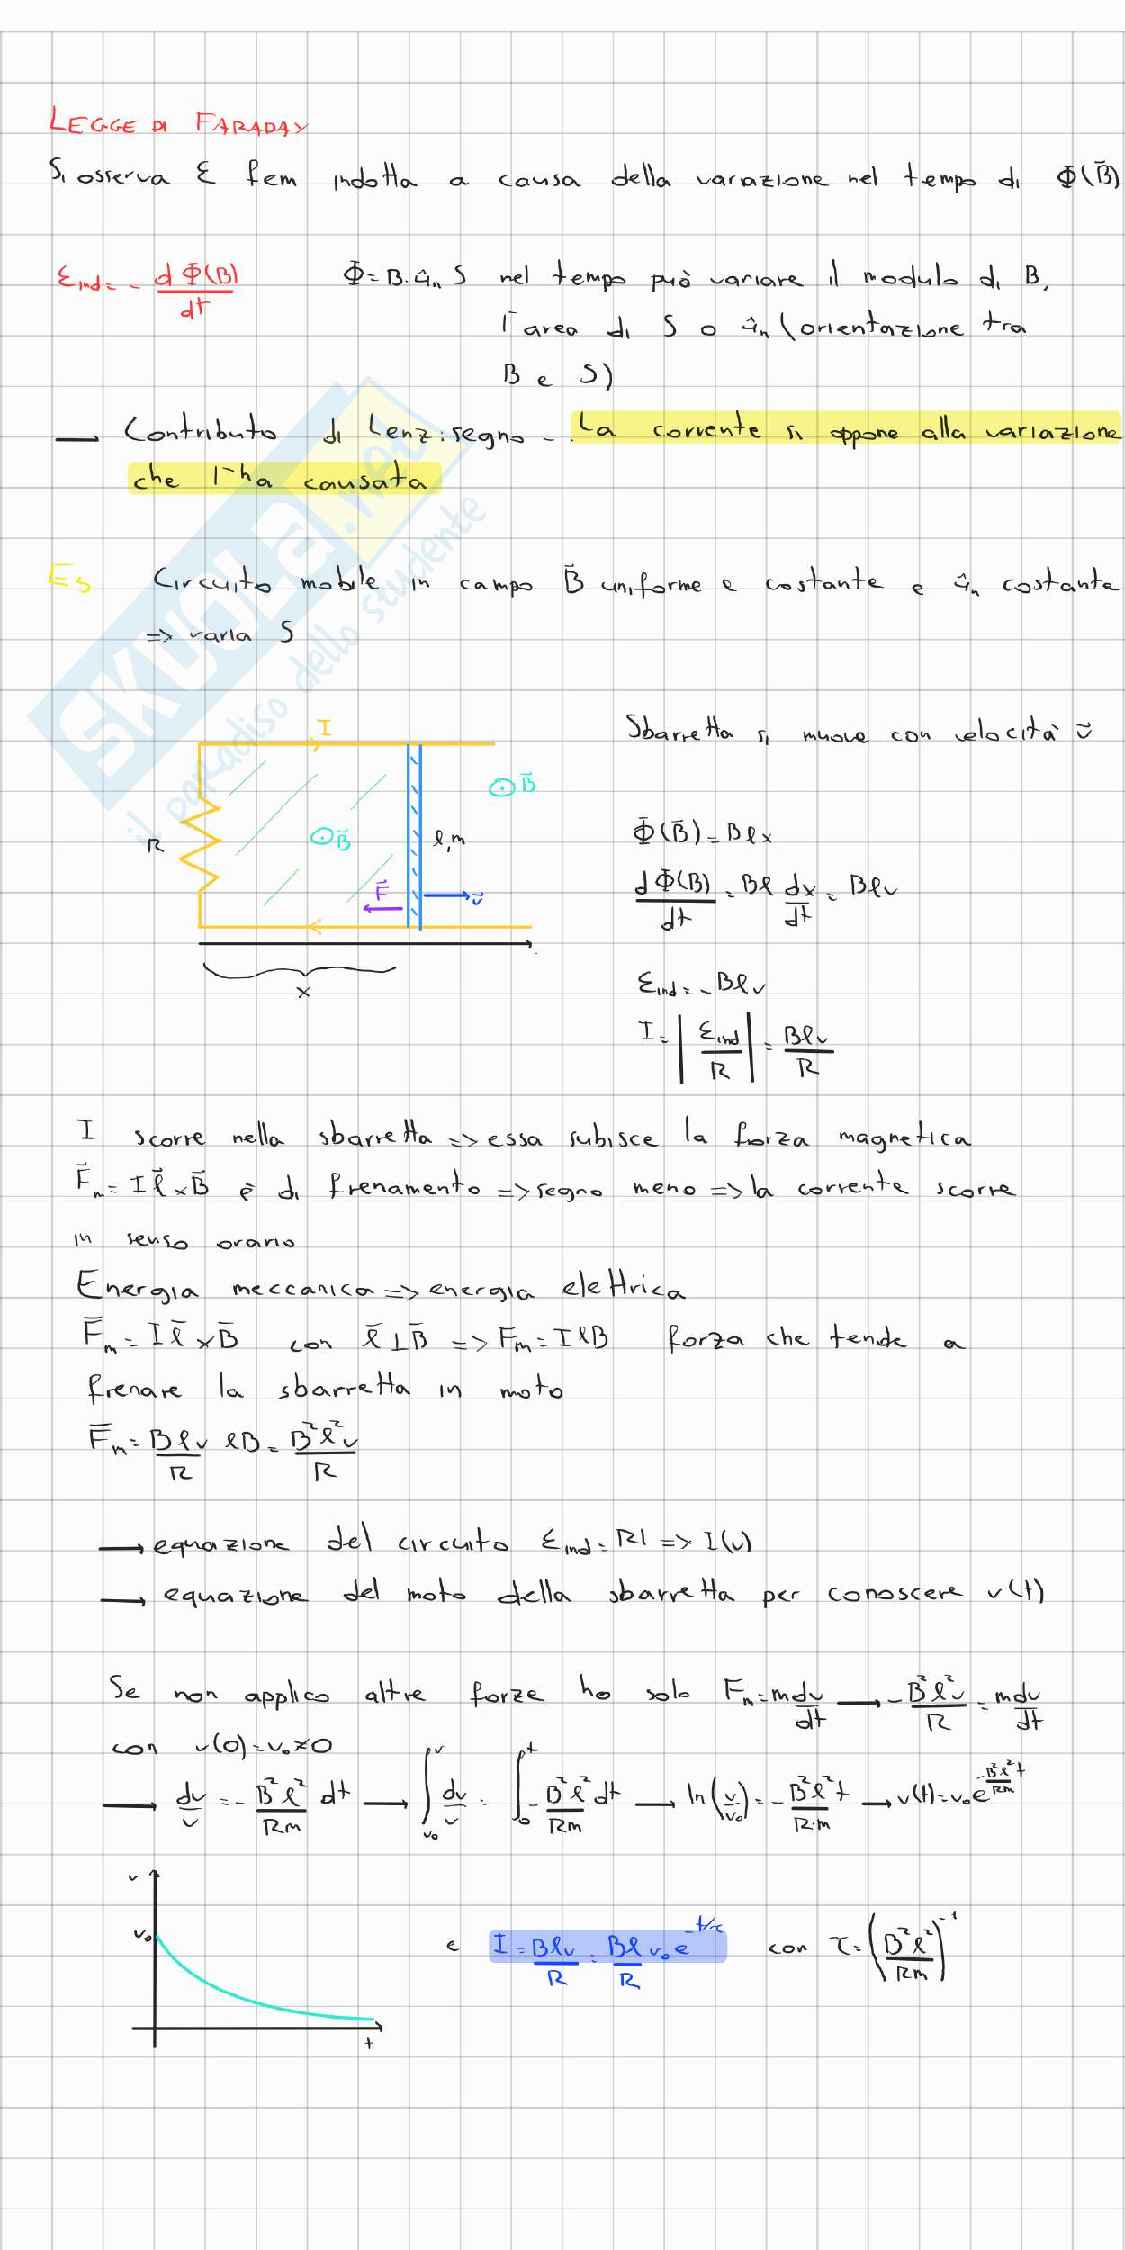 LEGGE DI FARADAY
Si osserva ε fem indotta a causa della variazione nel tempo di Φ(B̄)
ε_ind = - dΦ(B)/dt    Φ = B·û_n S nel tempo può variare il modulo di B,
l'area di S o û_n (orientazione tra
B e S)
— Contributo di Lenz: segno - . La corrente si oppone alla variazione
che l'ha causata
Es Circuito mobile in campo B̄ uniforme e costante e û_n costante
=> varia S
Sbarretta si muove con velocità v̄
I
⊙B̄
R
⊙B̄
l, m
F̄
v̄
x
Φ(B̄) = Blx
dΦ(B)/dt = Bl dx/dt = Blv
ε_ind = - Blv
I = |ε_ind/R| = Blv/R
I scorre nella sbarretta => essa subisce la forza magnetica
F̄_m = I l̄ x B̄ è di frenamento => segno meno => la corrente scorre
in senso orario
Energia meccanica => energia elettrica
F̄_m = I l̄ x B̄ con l̄ ⊥ B̄ => F_m = IlB forza che tende a
frenare la sbarretta in moto
F̄_m = Blv/R lB = B²l²v/R
→ equazione del circuito ε_ind = RI => I(v)
→ equazione del moto della sbarretta per conoscere v(t)
Se non applico altre forze ho solo F_m = m dv/dt → - B²l²v/R = m dv/dt
con v(0) = v₀ ≠ 0
→ dv/v = - B²l²/Rm dt → ∫_v₀^v dv/v = ∫_0^t - B²l²/Rm dt → ln(v/v₀) = - B²l²t/Rm → v(t) = v₀e^(-B²l²t/Rm)
v
v₀
t
e I = Blv/R = Bl/R v₀ e^(-t/τ) con τ = (B²l²/Rm)^-1
SKUOLA.net
il paradiso dello studente